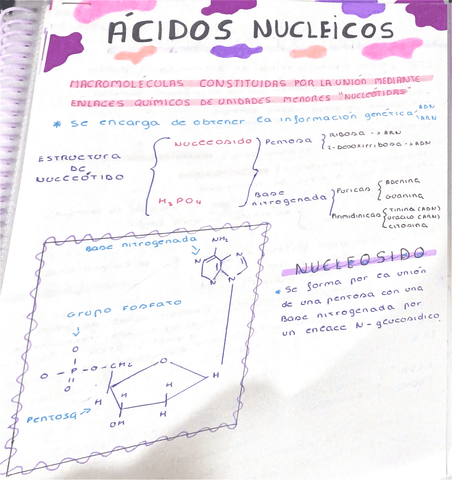 ÁCIDOS NUCLEICOS
MACROMOLÉCULAS CONSTITUIDAS POR LA UNIÓN MEDIANTE
ENLACES QUÍMICOS DE UNIDADES MENORES "NUCLEÓTIDAS"
* Se encarga de obtener la información genética ADN
ARN
ESTRUCTURA DE NUCLEÓTIDO
Nucleosido
Pentosa
Ribosa -> ARN
2-Desoxirribosa -> ADN
Base nitrogenada
Puricas
Adenina
Guanina
Pirimidinicas
Timina (ADN)
Uracilo (ARN)
Citosina
H3PO4
Base nitrogenada
NH2
N
N
N
N
GRUPO FOSFATO
O
O - P - O - CH2
O
O
H
H
H
H
OH
H
PENTOSA
NUCLEOSIDO
* Se forma por la unión
de una pentosa con una
Base nitrogenada por
un enlace N-glucosidico.